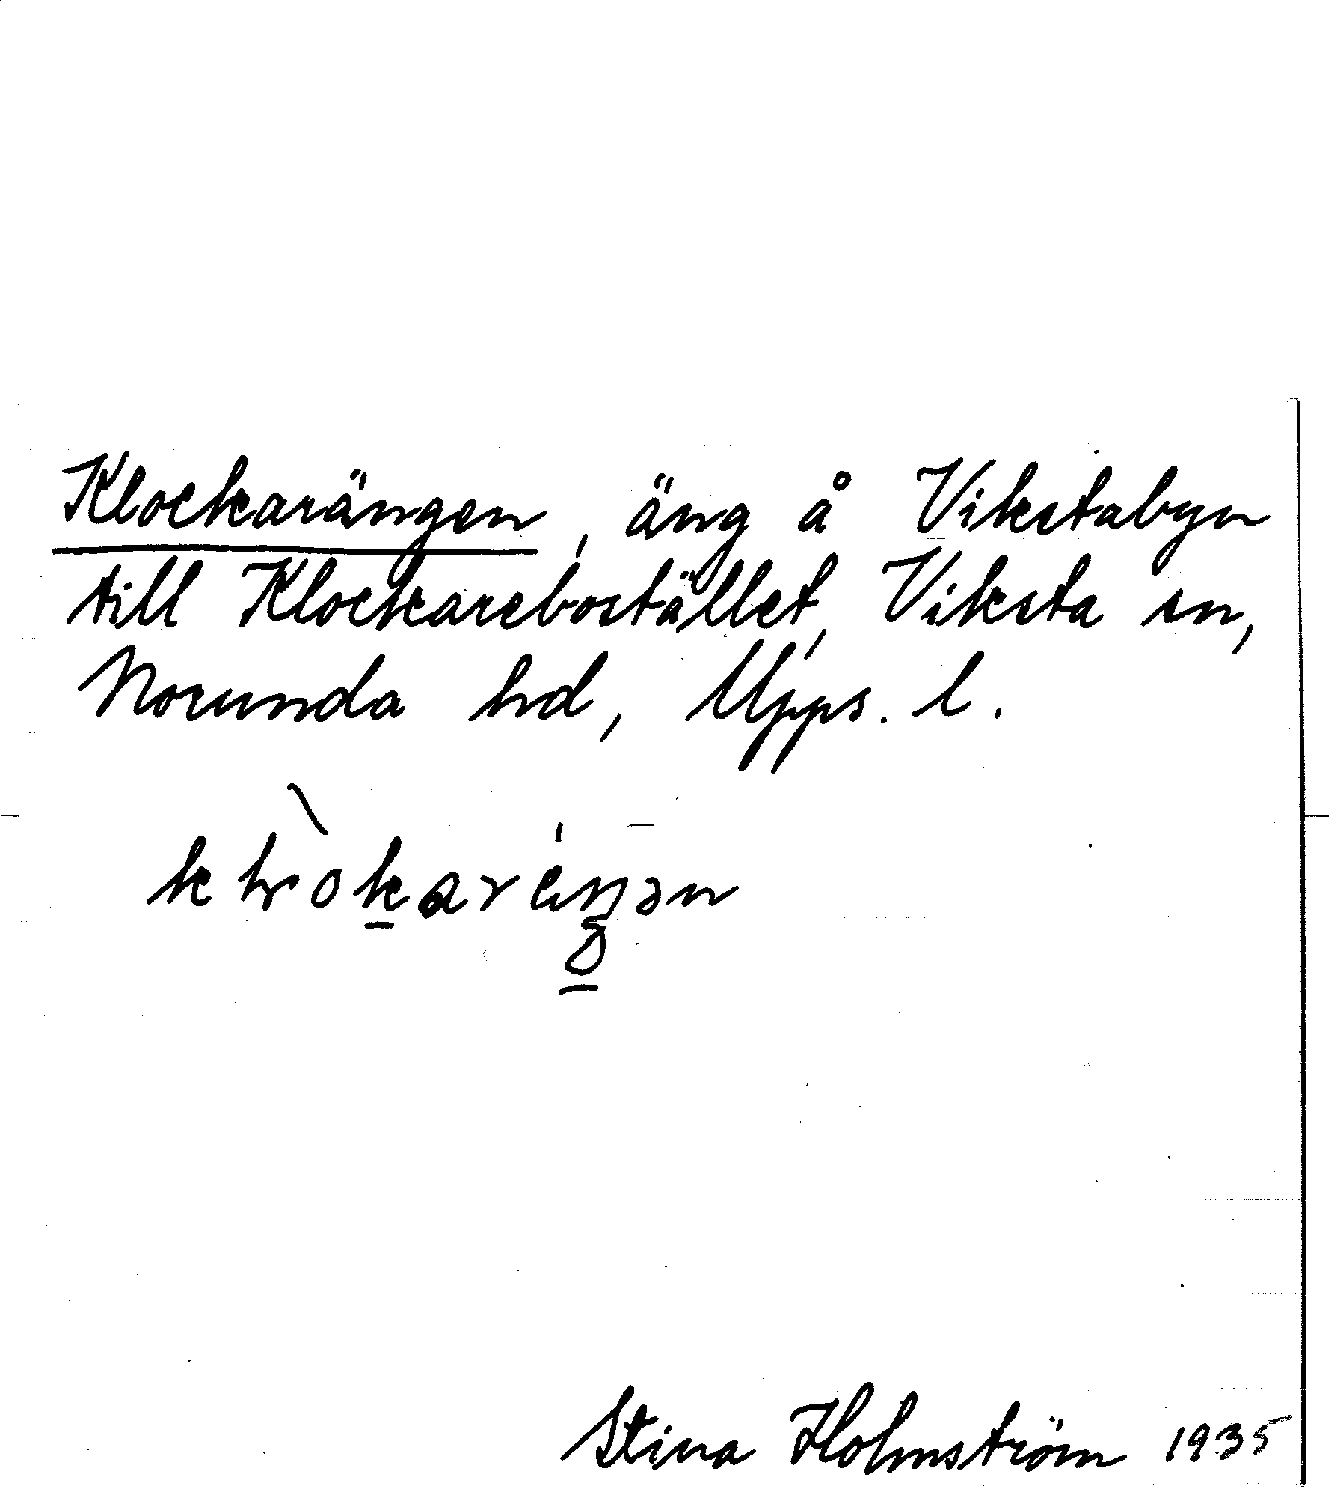 Klockarängen, äng å Vikstabyn
till Klockarebostället, Viksta sn,
Norunda hd, Upps. l.
Stina Holmström 1935